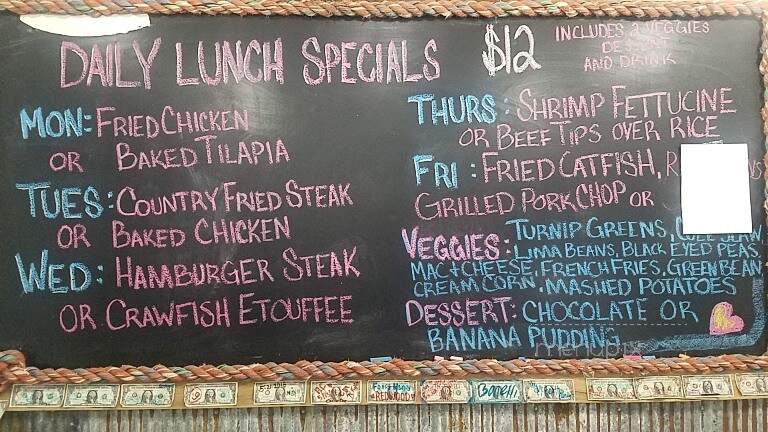 DAILY LUNCH SPECIALS
$12
INCLUDES 2 VEGGIES
DESSERT
AND DRINK
MON: FRIED CHICKEN
OR BAKED TILAPIA
TUES: COUNTRY FRIED STEAK
OR BAKED CHICKEN
WED: HAMBURGER STEAK
OR CRAWFISH ETOUFFEE
THURS: SHRIMP FETTUCINE
OR BEEF TIPS OVER RICE
FRI: FRIED CATFISH,
GRILLED PORK CHOP OR
VEGGIES: TURNIP GREENS, COLE SLAW
LIMA BEANS, BLACK EYED PEAS,
MAC+CHEESE, FRENCH FRIES, GREEN BEAN
CREAM CORN, MASHED POTATOES
DESSERT: CHOCOLATE OR
BANANA PUDDING